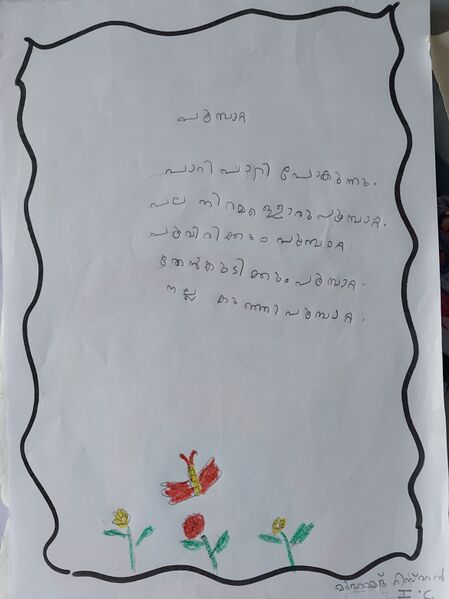 പൂമ്പാറ്റ
പാറി പാറി പോകുന്നു.
പല നിറമുള്ളൊരു പൂമ്പാറ്റ.
പൂവിരിക്കും പൂമ്പാറ്റ.
തേൻകുടിക്കും പൂമ്പാറ്റ.
നല്ല കുഞ്ഞി പൂമ്പാറ്റ.
മുഹമ്മദ് റിസ്വാൻ
I. C